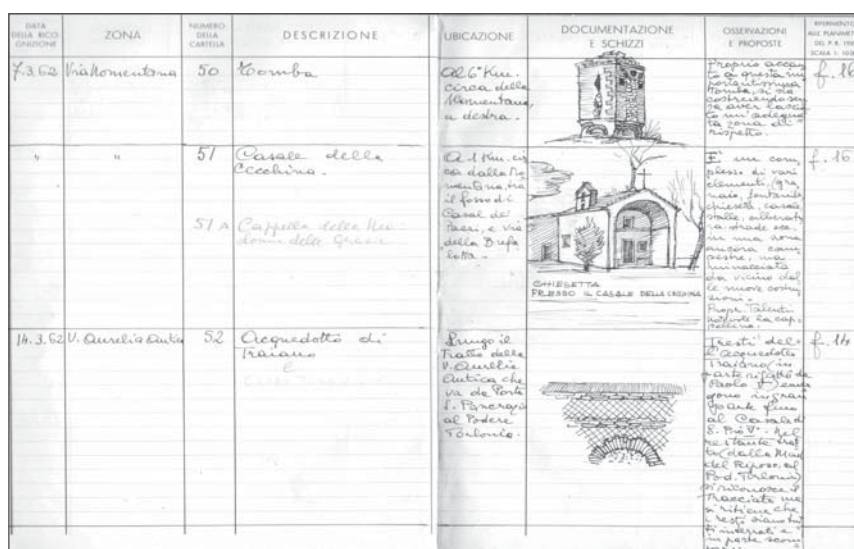 DATA DELLA RICOGNIZIONE
ZONA
NUMERO DELLA CARTELLA
DESCRIZIONE
UBICAZIONE
DOCUMENTAZIONE E SCHIZZI
OSSERVAZIONI E PROPOSTE
RIFERIMENTO ALLE PLANIMETRIE
DEL P. R.
SCALA 1:
7.3.62
Via Nomentana
50
Tomba
Al 6° Km.
circa della
Nomentana,
a destra.
Proprio accan
to a questa im
portantissima
tomba, si sta
costruendo sen
za aver lascia
to un'adegua
ta zona di
rispetto.
f. 16
"
"
51
Casale della
Cecchina.
A 1 Km. cir
ca dalla No
mentana, tra
il fosso di
Casal de'
Pazzi, e via
della Bufa
lotta.
CHIESETTA
PRESSO IL CASALE DELLA CECCHINA
È un com
plesso di vari
elementi, (gra
naio, fontanile,
chiesetta, casale
stalle, alberat
a strade ecc.
in una zona
ancora cam
pestre, ma
minacciata
da vicino dal
le nuove costru
zioni.
Propr. Talenti
la cap
pellina.
f. 16
51 A
Cappella della Ma
donna delle Grazie
14.3.62
V. Aurelia Antica
52
Acquedotto di
Traiano
Lungo il
tratto della
V. Aurelia
Antica che
va da Porta
S. Pancrazio
al Podere
Torlonia.
I resti del
l'acquedotto
Traiano (in
parte rifatto da
Paolo V)
gono in gran
parte fino
al Casale di
S. Pio V°. Nel
restante trat
to (dalla Mad.
del Riposo, al
Pod. Torlonia)
si riconosce il
tracciato ma
si ritiene che
i resti siano tut
ti interrati e
in parte scom
f. 14